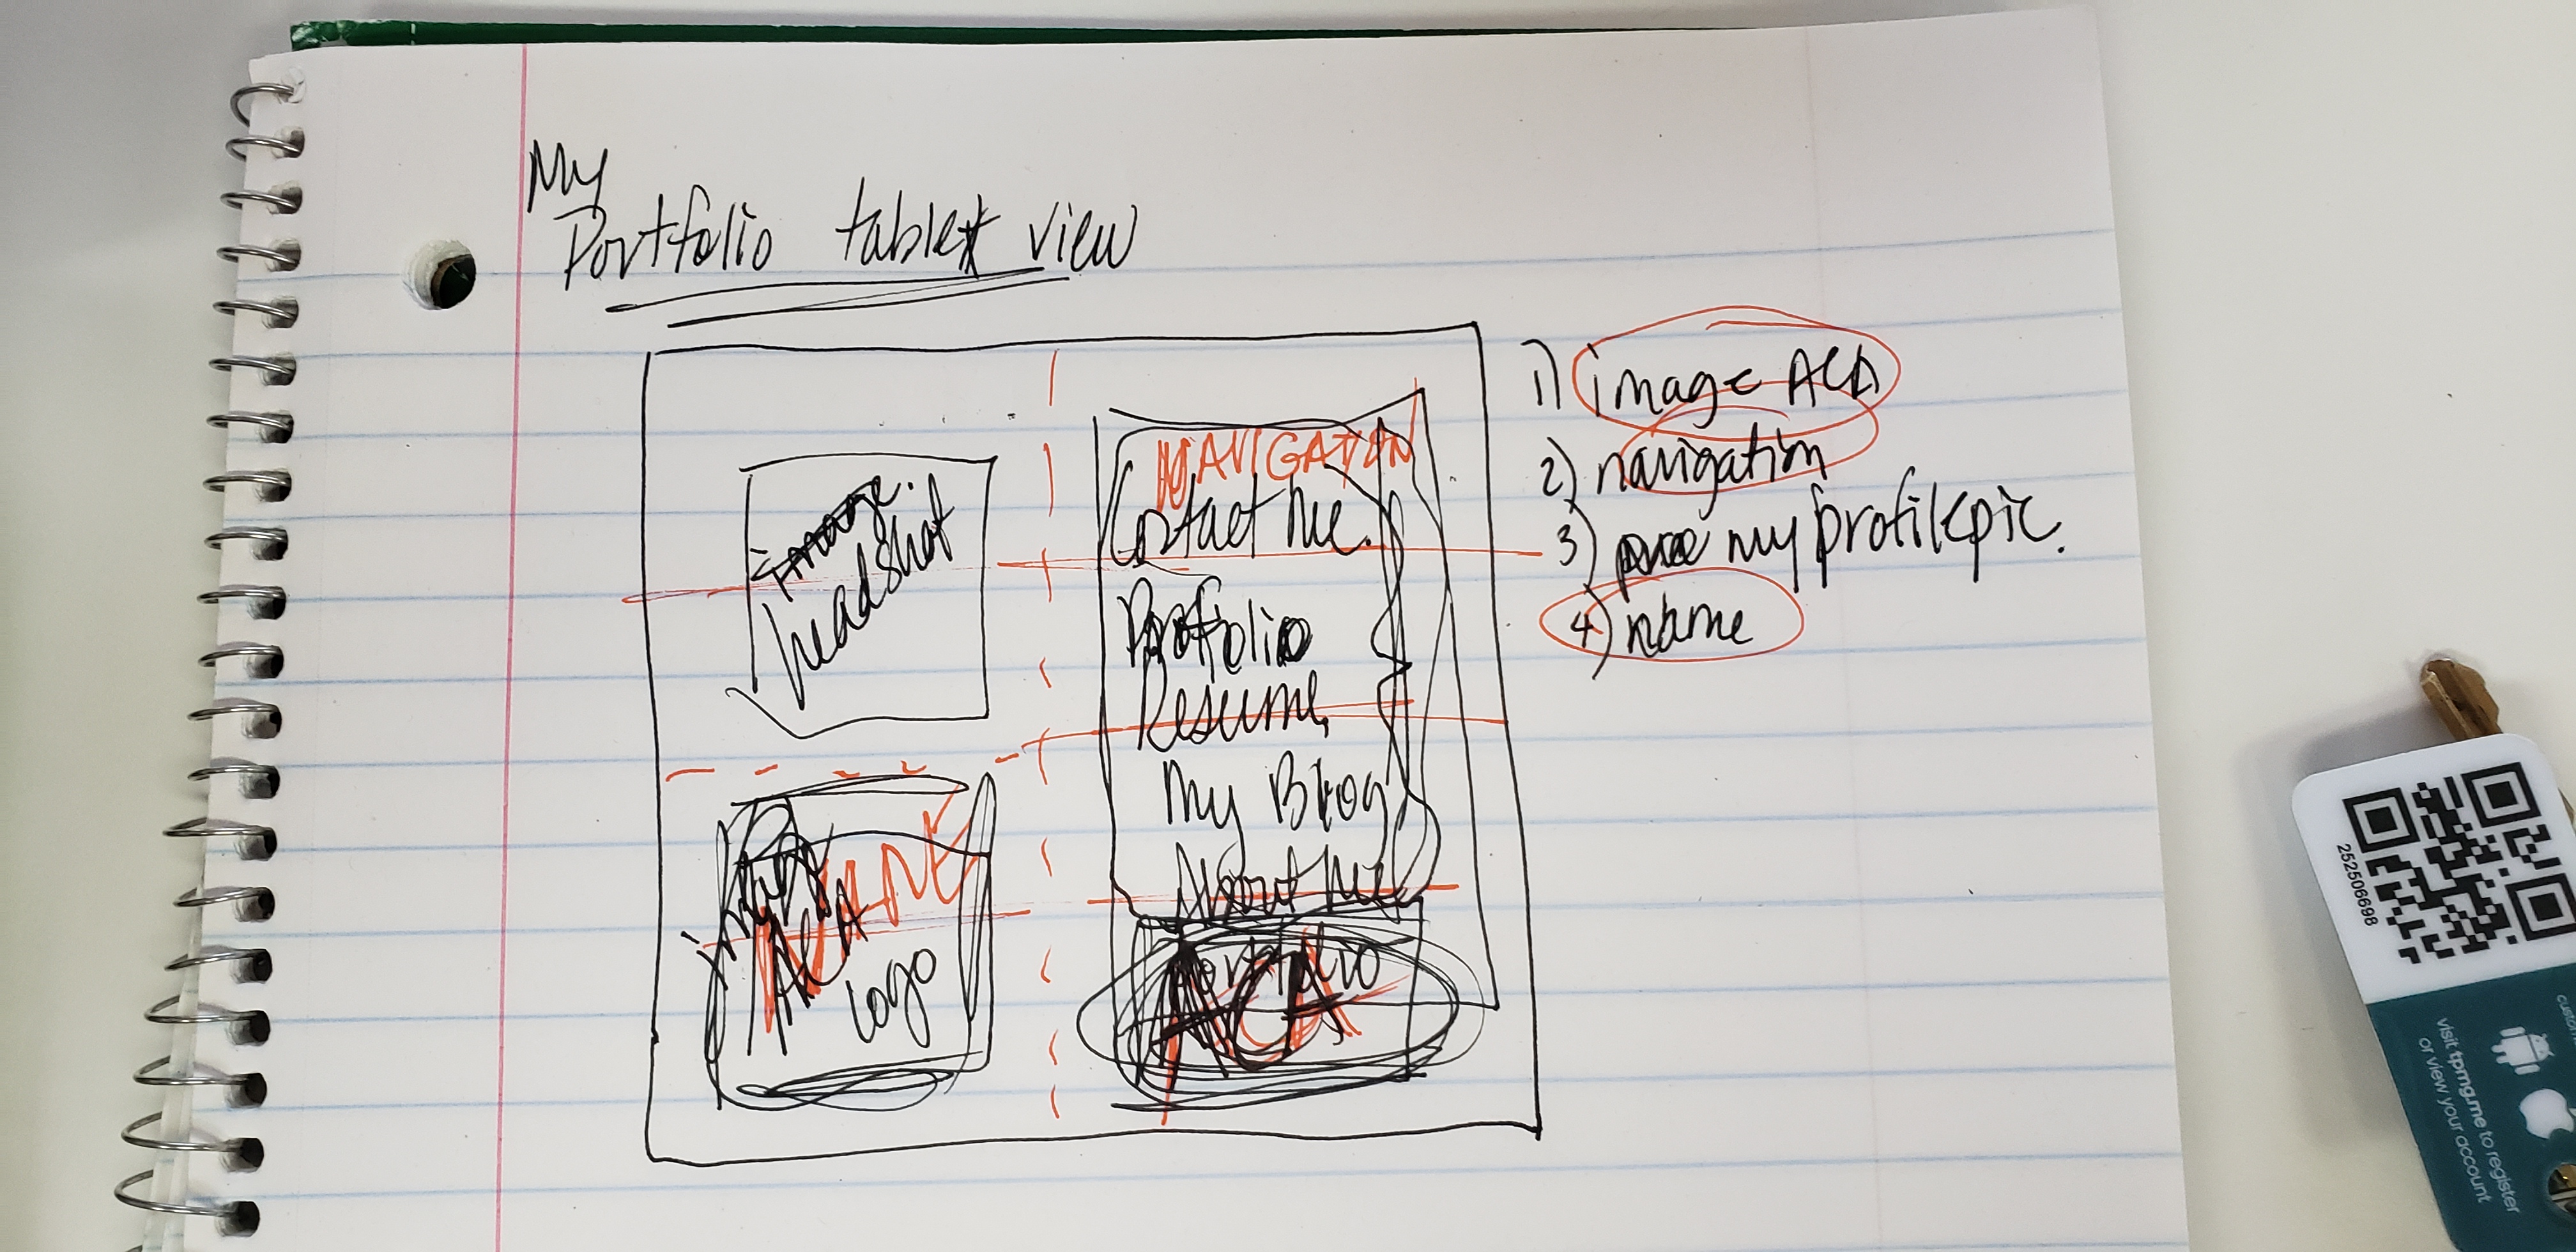 My
Portfolio tablet view
image.
headshot
NAVIGATION
Contact Me.
Portfolio
Resume
My Blog
About Me
NAME
ACA
logo
Portfolio
ACA
1) image ACA
2) navigation
3) my profilepic.
4) name
252506698
visit tpmg.me to register
or view your account